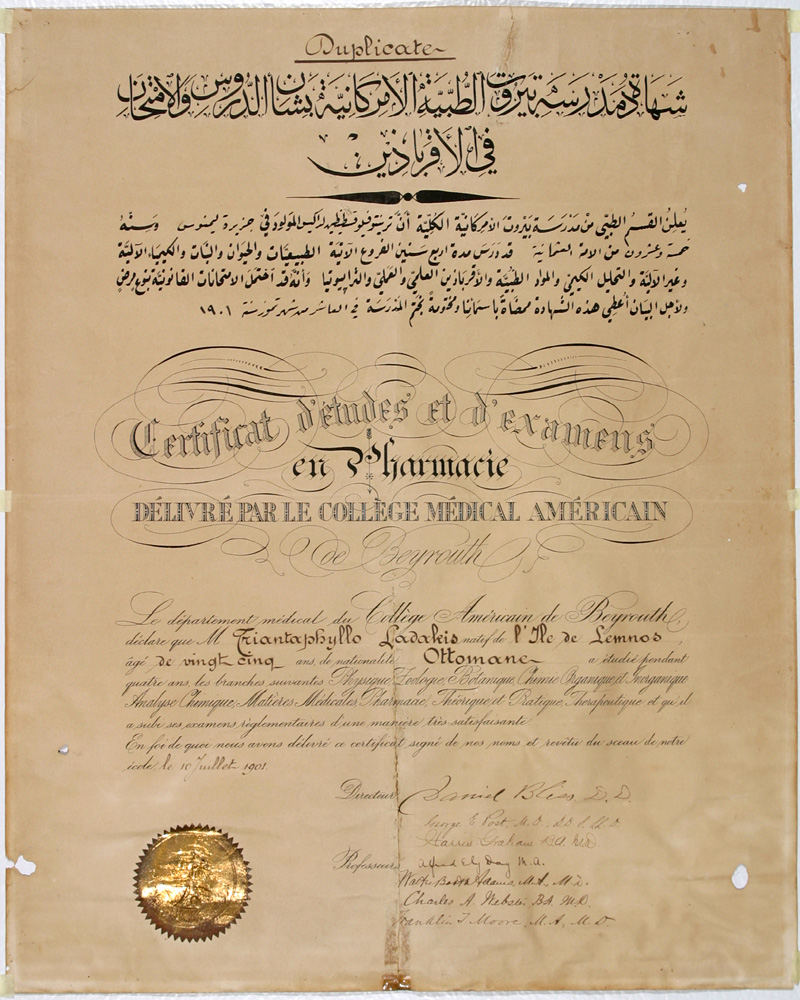 Duplicate
شهادة مدرسة بيروت الطبية الأمركانية بشان الدروس والامتحان
في الأقرباذين
يعلن القسم الطبي من مدرسة بيروت الأمركانية الكلية أن المولود في جزيرة ليمنوس وسنه
خمسة وعشرون من الامة العثمانية قد درس مدة اربع سنين الفروع الآتية الطبيعيات والحيوان والنبات والكيمياء الآلية
وغير الآلية والتحليل الكيمي والمواد الطبية والأقرباذين العلمي والعملي والثرابيوتيا وأنه قد احتمل الامتحانات القانونية بنوع مرضٍ
ولأجل البيان أعطي هذه الشهادة ممضاة باسمائنا ومختومة بختم المدرسة في العاشر من شهر تموز سنة ١٩٠١
Certificat d'études et d'examens
en Pharmacie
DÉLIVRÉ PAR LE COLLÈGE MÉDICAL AMÉRICAIN
de Beyrouth
Le département médical du Collège Américain de Beyrouth,
déclare que M Triantaphyllo Ladakis natif de l'Ile de Lemnos
âgé de vingt cinq ans, de nationalité Ottomane a étudié pendant
quatre ans, les branches suivantes Physique, Zoologie, Botanique, Chimie Organique et Inorganique
Analyse Chimique, Matières Médicales, Pharmacie, Théorique et Pratique, Thérapeutique et qu'il
a subi ses examens règlementaires d'une manière très satisfaisante
En foi de quoi nous avons délivré ce certificat signé de nos noms et revêtu du sceau de notre
école, le 10 Juillet 1901
Directeur Daniel Bliss, D.D.
George E. Post, M.D., D.D.S., LL.D
Harris Graham B.A. M.D.
Professeurs Alfred Ely Day M.A.
Walter Booth Adams, M.A., M.D.
Charles A. Webster, B.A. M.D.
Franklin T. Moore, M.A., M.D